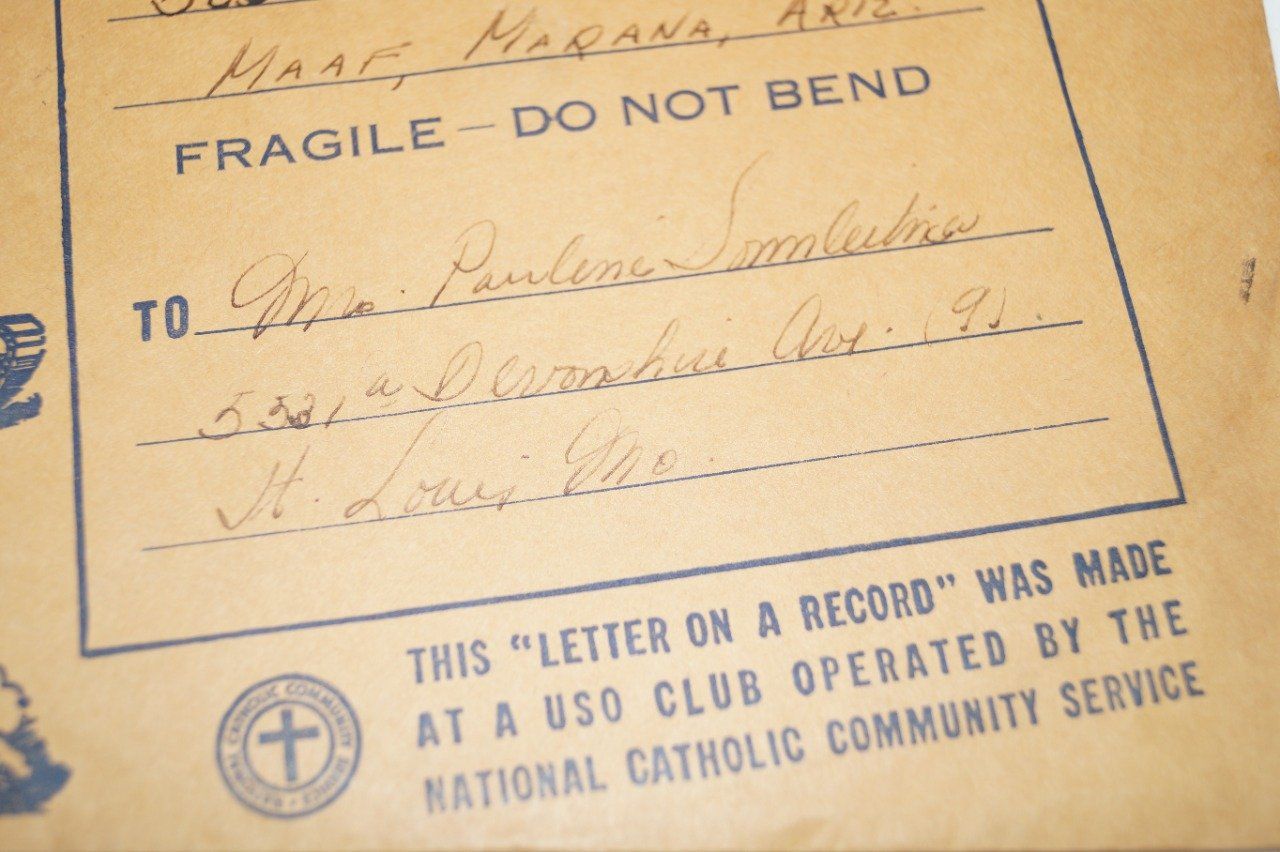 MAAF, MARANA, ARIZ.
FRAGILE — DO NOT BEND
TO Mrs. Pauline
Devonshire Ave. (9).
St. Louis Mo.
THIS "LETTER ON A RECORD" WAS MADE
AT A USO CLUB OPERATED BY THE
NATIONAL CATHOLIC COMMUNITY SERVICE
NATIONAL CATHOLIC COMMUNITY SERVICE